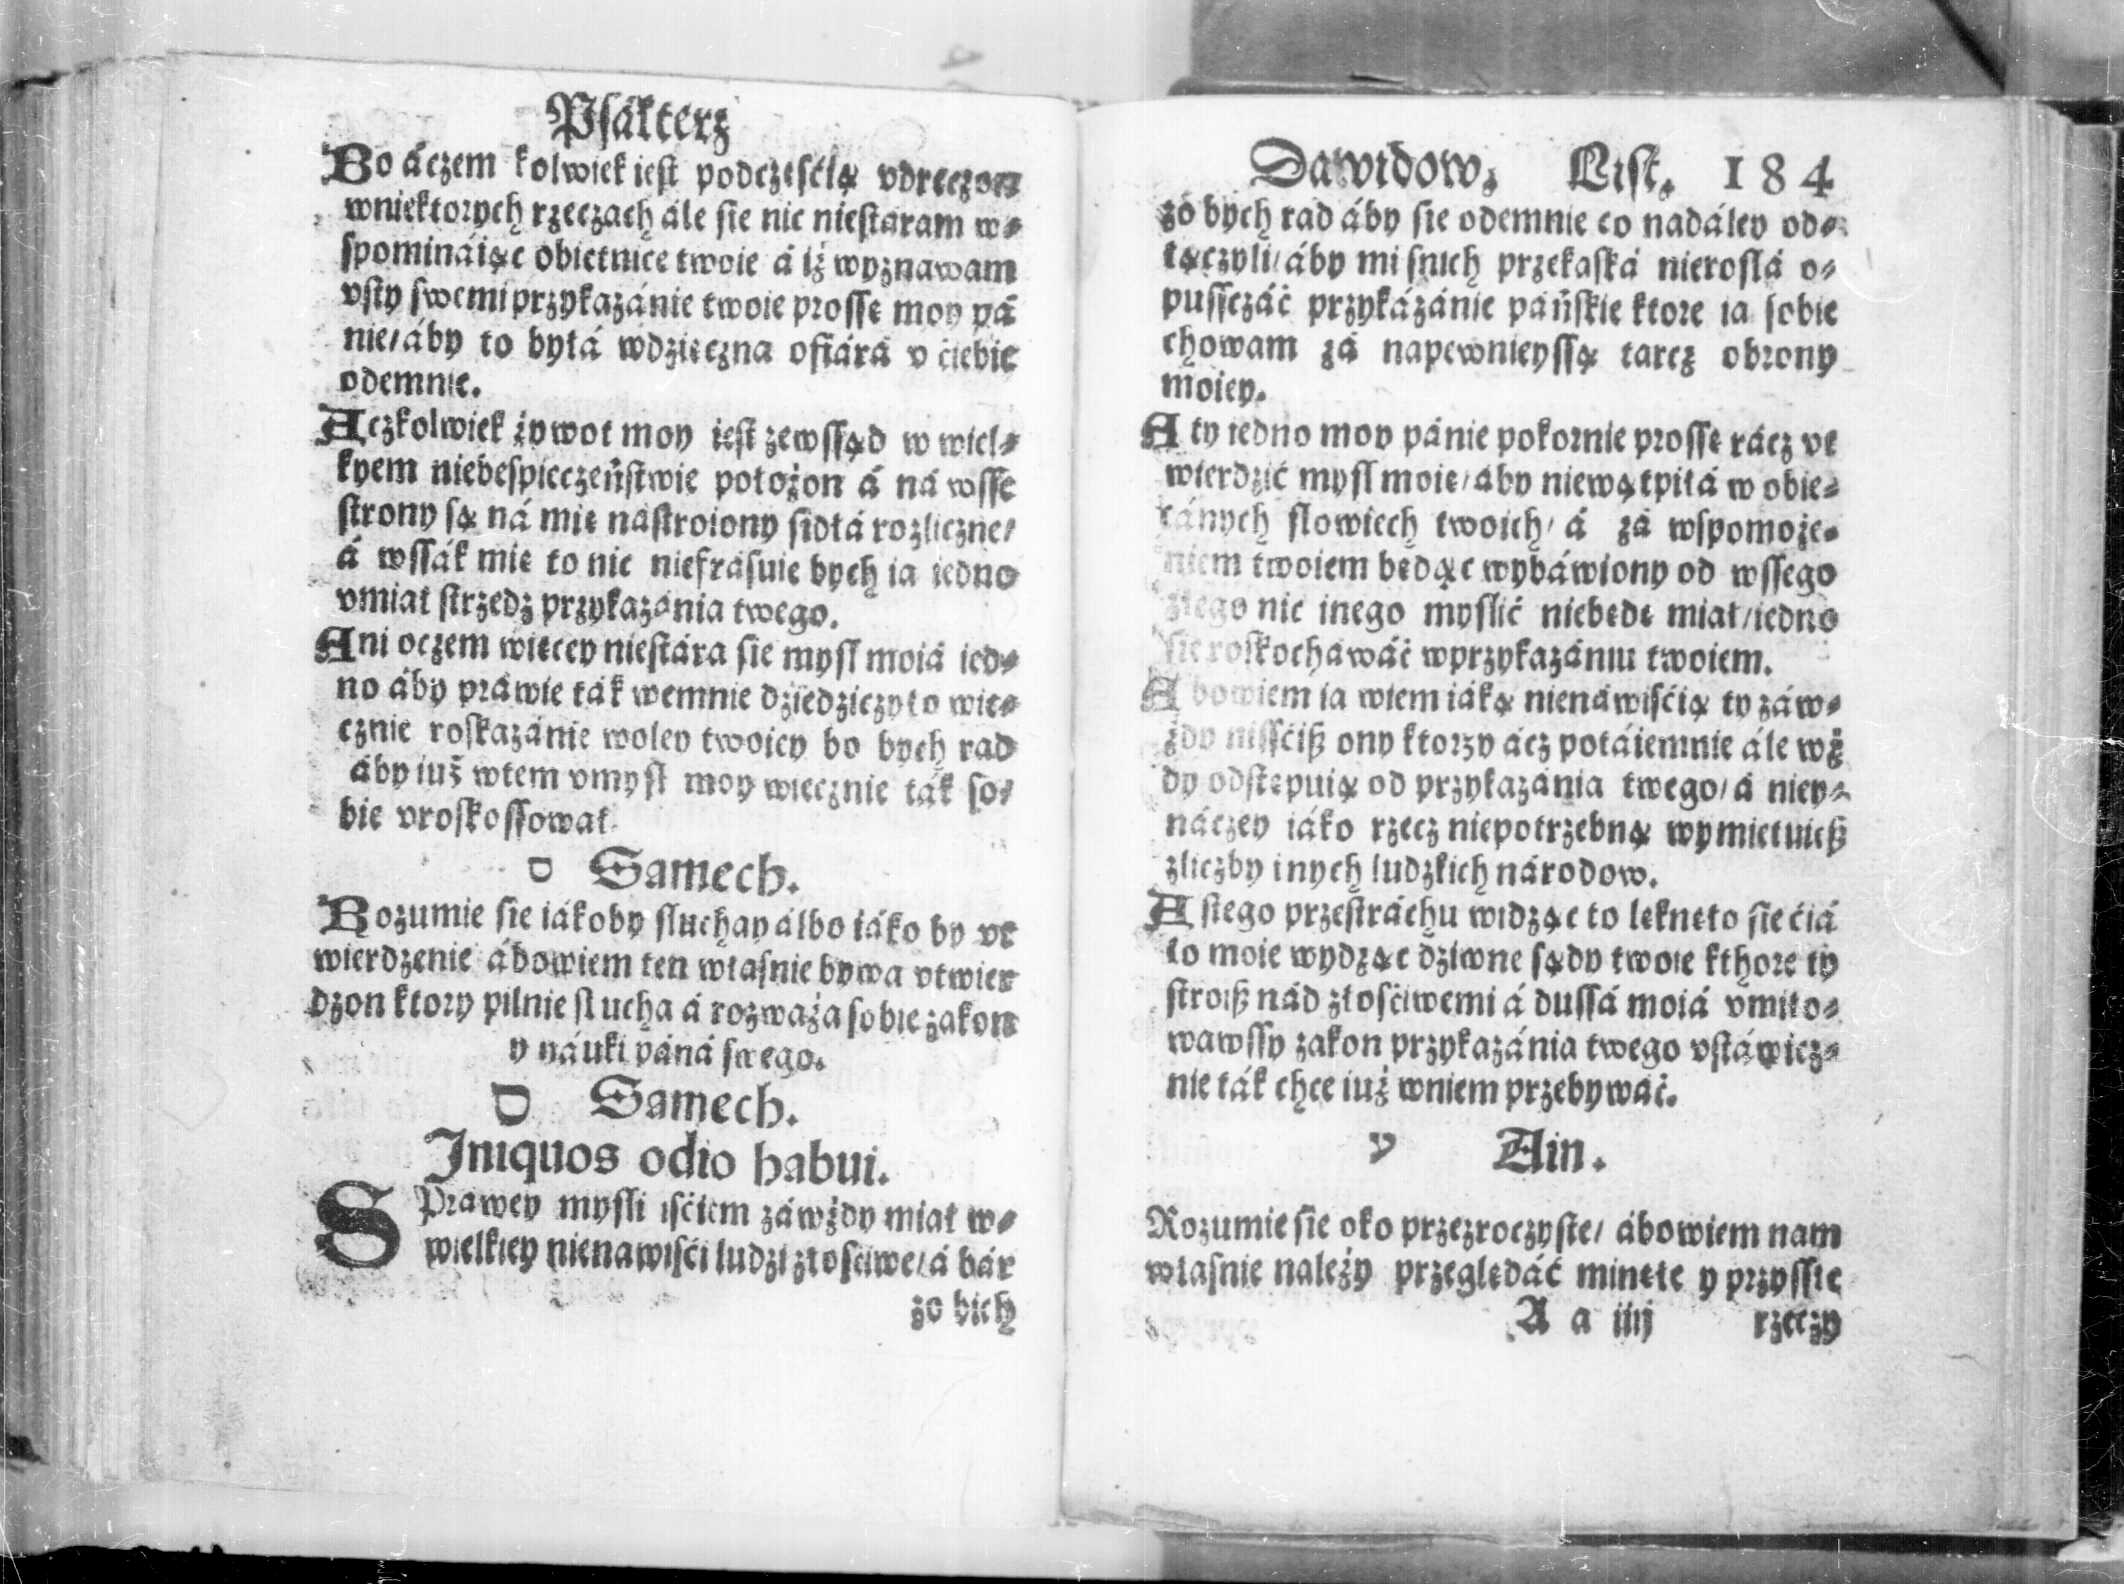 Psałterz
Bo aczem kolwiek iest podczęścią vdręczon
wniektorych rzeczach ále sie nic niestáram w⸗
spomináiąc obietnice twoie á iż wyznawam
vsty swemi przykazánie twoie proszę moy pá
nie/ áby to byłá wdzięczna ofiárá v ćiebie
odemnie.
Aczkolwiek żywot moy iest zewssąd w wiel⸗
kyem niebespieczeństwie położon á ná wsse
strony są ná mię nástroiony sidłá rozliczne/
á wssák mię to nic niefrásuie bych ia iedno
vmiał strzedz przykazánia twego.
Ani oczem więcey niestára sie mysl moiá ied⸗
no áby práwie ták wemnie dziedziczyło wie⸗
cznie roskazánie woley twoiey bo bych rad
áby iuż wtem vmysł moy wiecznie ták so⸗
bie vroskossował
ס Samech.
Rozumie sie iákoby sluchay álbo iáko by vt
wierdzenie ábowiem ten własnie bywa vtwier
dzon ktory pilnie slucha á rozważa sobie zakon
y náuki páná swego.
ס Samech.
Iniquos odio habui.
SPrawey mysli iśćiem záwżdy miał w⸗
wielkiey nienawiśći ludzi złosciwe/ á bár
zo bich
Dawidow. List. 184
zo bych rad áby sie odemnie co nadáley od⸗
łączyli/ áby mi snich przekaská nierosłá o⸗
pussczáć przykázánie páńskie ktore ia sobie
chowam zá napewnieyssą tarcz obrony
moiey.
A ty iedno moy pánie pokornie prossę rácz vt
wierdzić mysl moię/ áby niewątpiłá w obie⸗
cánych slowiech twoich/ á zá wspomoże⸗
niem twoiem będąc wybáwiony od wssego
złego nic inego myslić niebędę miał/ iedno
sie roskochawáć wprzykazániu twoiem.
Abowiem ia wiem iáką nienáwiśćią ty záw⸗
żdy nissćiß ony ktorzy ácz potáiemnie ále wż
dy odstępuią od przykazánia twego/ á niey⸗
náczey iáko rzecz niepotrzebną wymietuieß
zliczby inych ludzkich národow.
A stego przestráchu widząc to lęknęło sie ćiá
ło moie wydząc dziwne sądy twoie kthore ty
stroiß nád złośćiwemi á dussá moiá vmiło⸗
wawssy zakon przykazánia twego vstáwicz⸗
nie ták chce iuż wniem przebywáć.
ע Ain.
Rozumie sie oko przezroczyste/ ábowiem nam
własnie należy przeględáć minęłe y przyssłe
A a iiij rzeczy